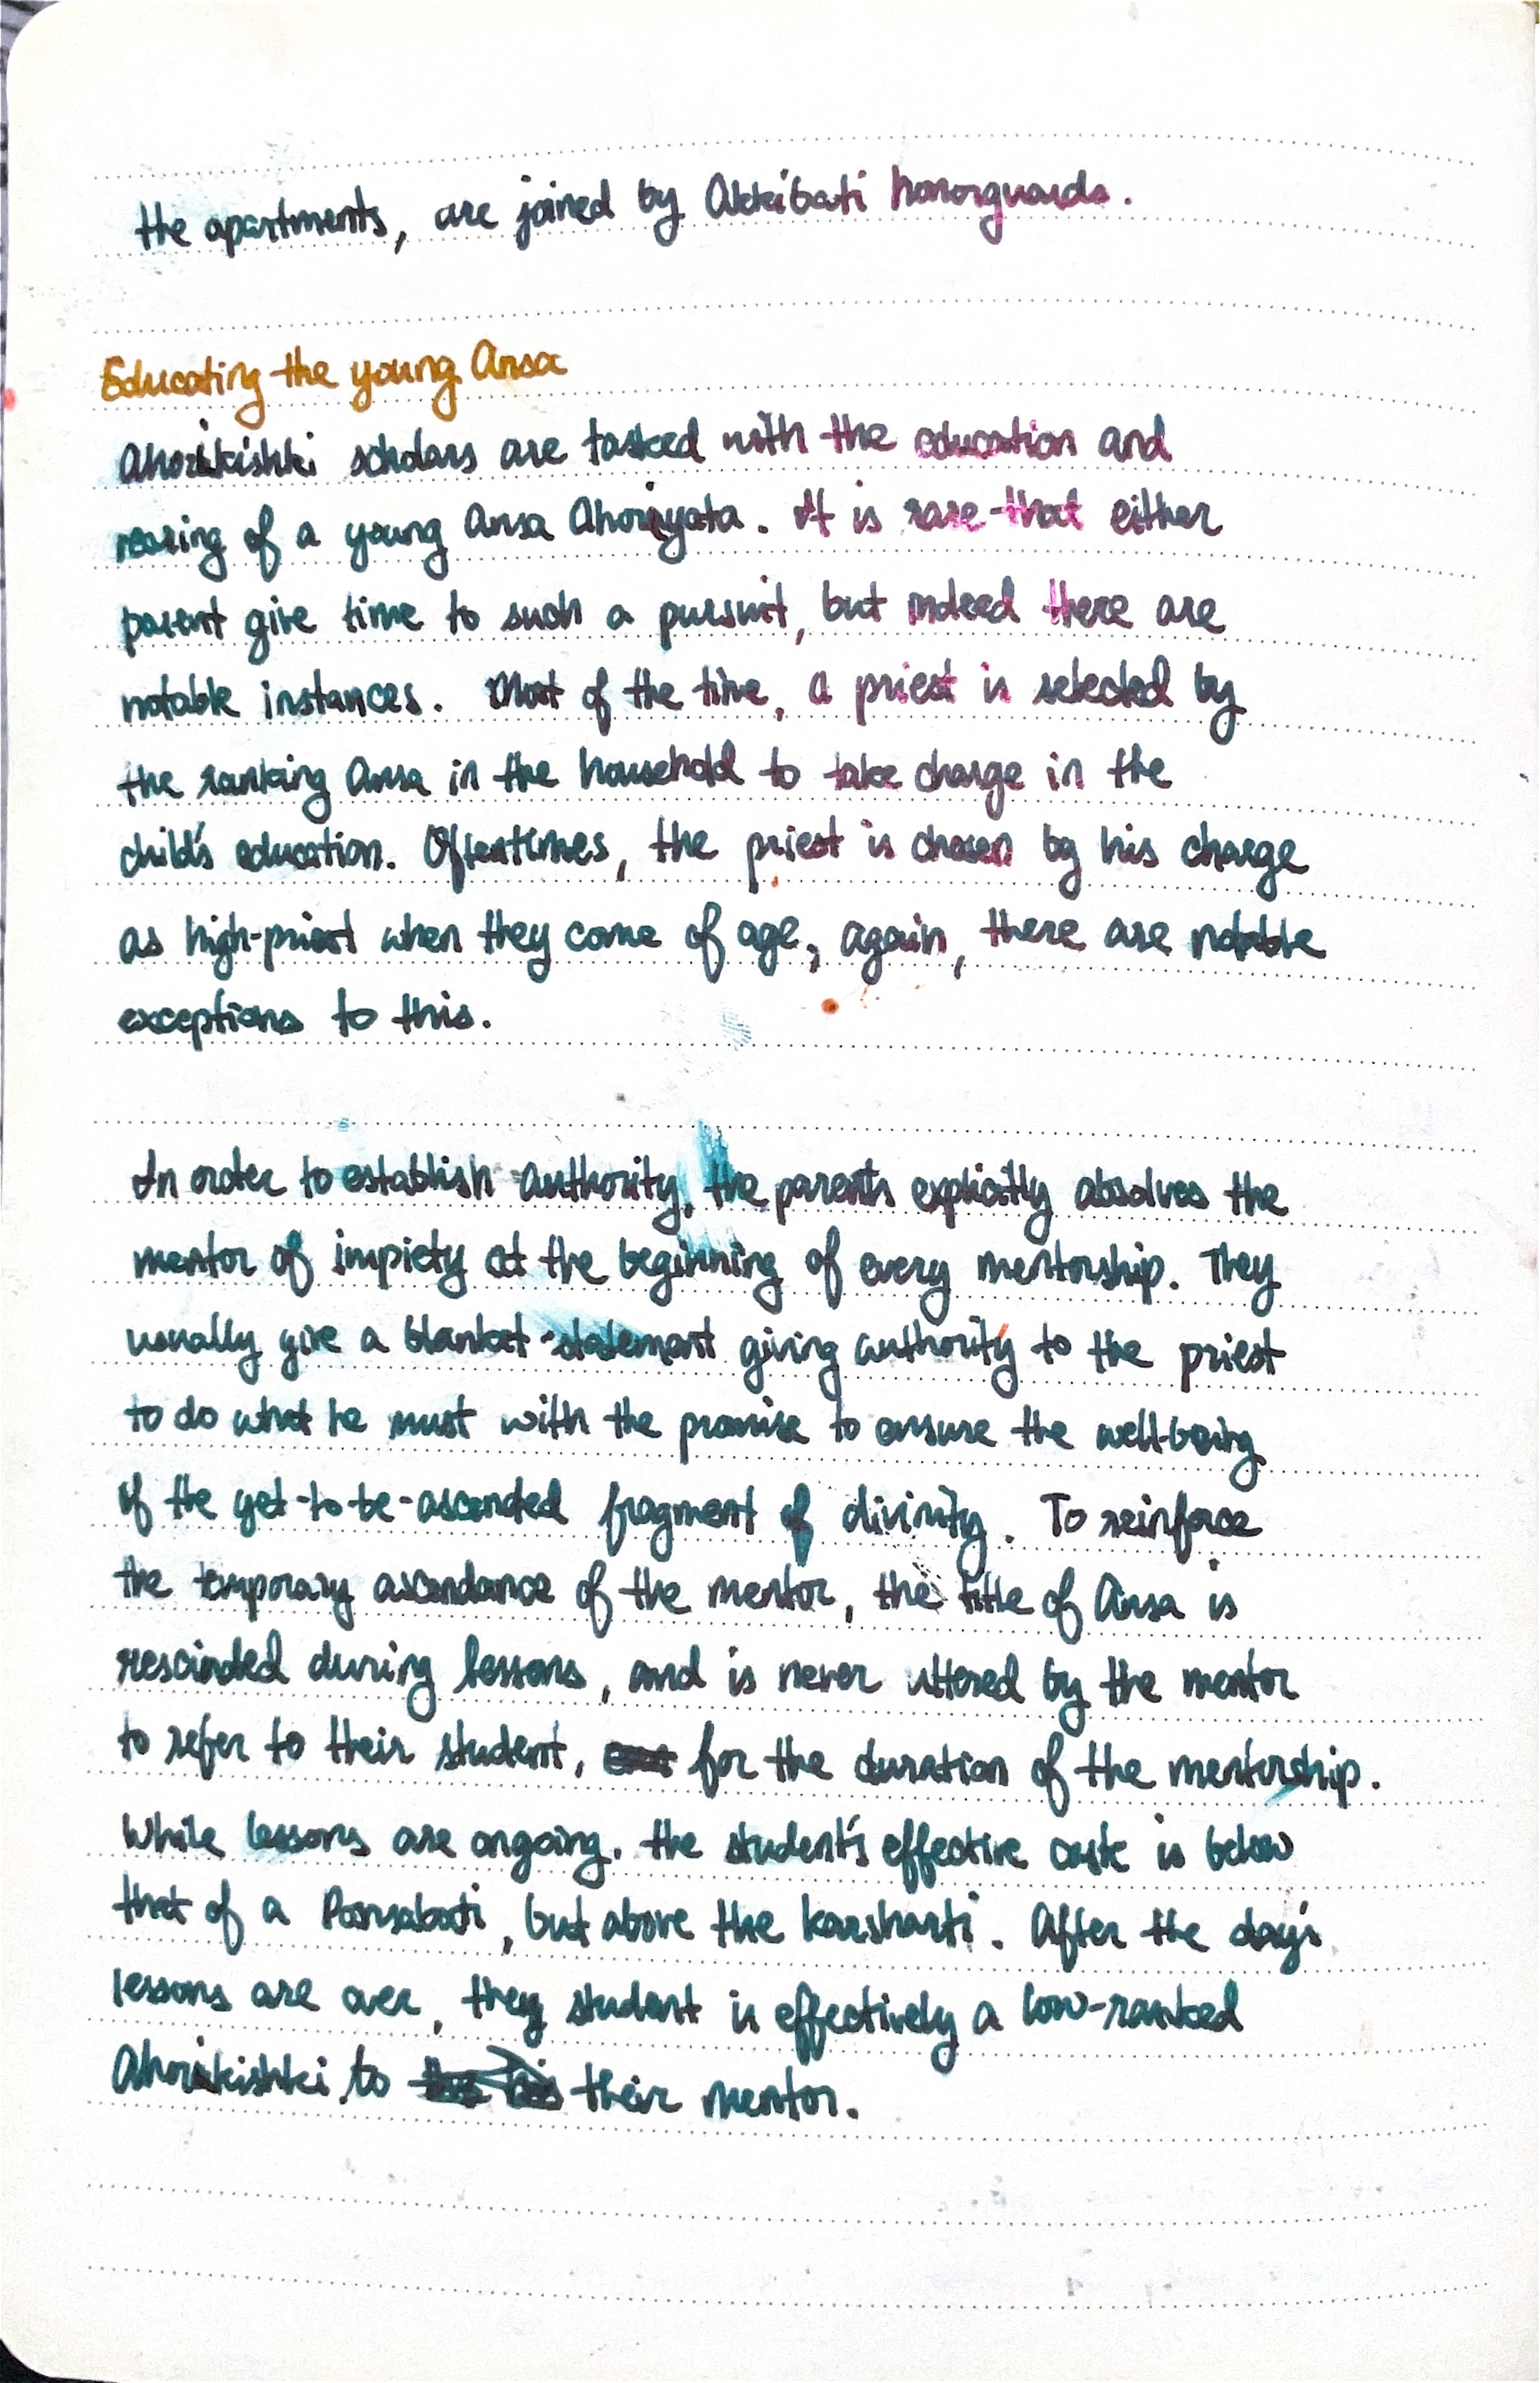 the apartments, are joined by Akkibati honorguards.
Educating the young Ansa
Ahorikishki scholars are tasked with the education and
rearing of a young Ansa Ahoriyata. It is rare that either
parent give time to such a pursuit, but indeed there are
notable instances. Most of the time, a priest is selected by
the ranking Ansa in the household to take charge in the
child's education. Oftentimes, the priest is chosen by his charge
as high-priest when they come of age, again, there are notable
exceptions to this.
In order to establish authority, the parents explicitly absolves the
mentor of impiety at the beginning of every mentorship. They
usually give a blanket statement giving authority to the priest
to do what he must with the promise to ensure the well-being
of the yet-to-be-ascended fragment of divinity. To reinforce
the temporary ascendance of the mentor, the title of Ansa is
rescinded during lessons, and is never uttered by the mentor
to refer to their student, for the duration of the mentorship.
While lessons are ongoing, the student's effective caste is below
that of a Pansabati, but above the karsharti. After the day's
lessons are over, they student is effectively a low-ranked
Ahorikishki to their mentor.